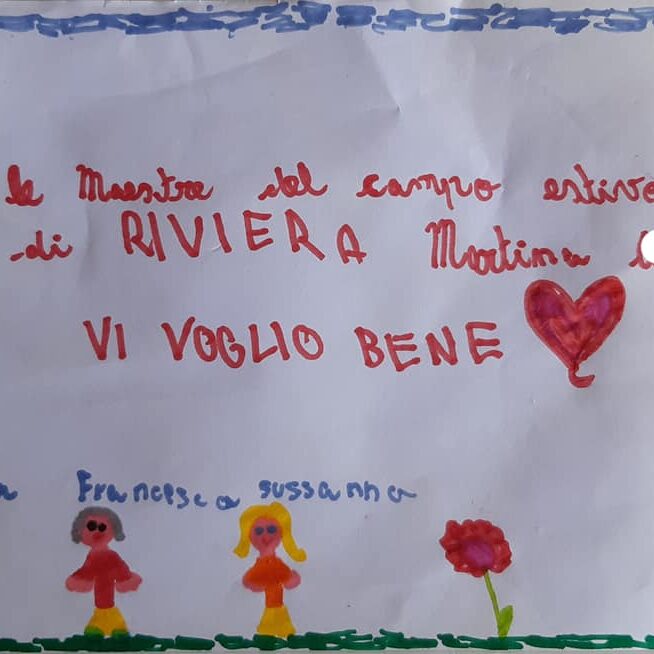 le Maestre del campo estivo
di RIVIERA Martina
VI VOGLIO BENE
Francesca sussanna